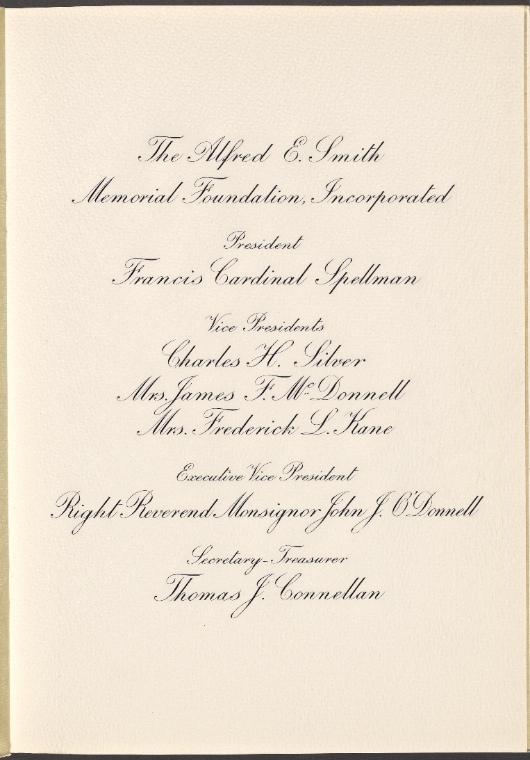 The Alfred E. Smith
Memorial Foundation, Incorporated
President
Francis Cardinal Spellman
Vice Presidents
Charles H. Silver
Mrs. James F. McDonnell
Mrs. Frederick L. Kane
Executive Vice President
Right Reverend Monsignor John J. O'Donnell
Secretary-Treasurer
Thomas J. Connellan